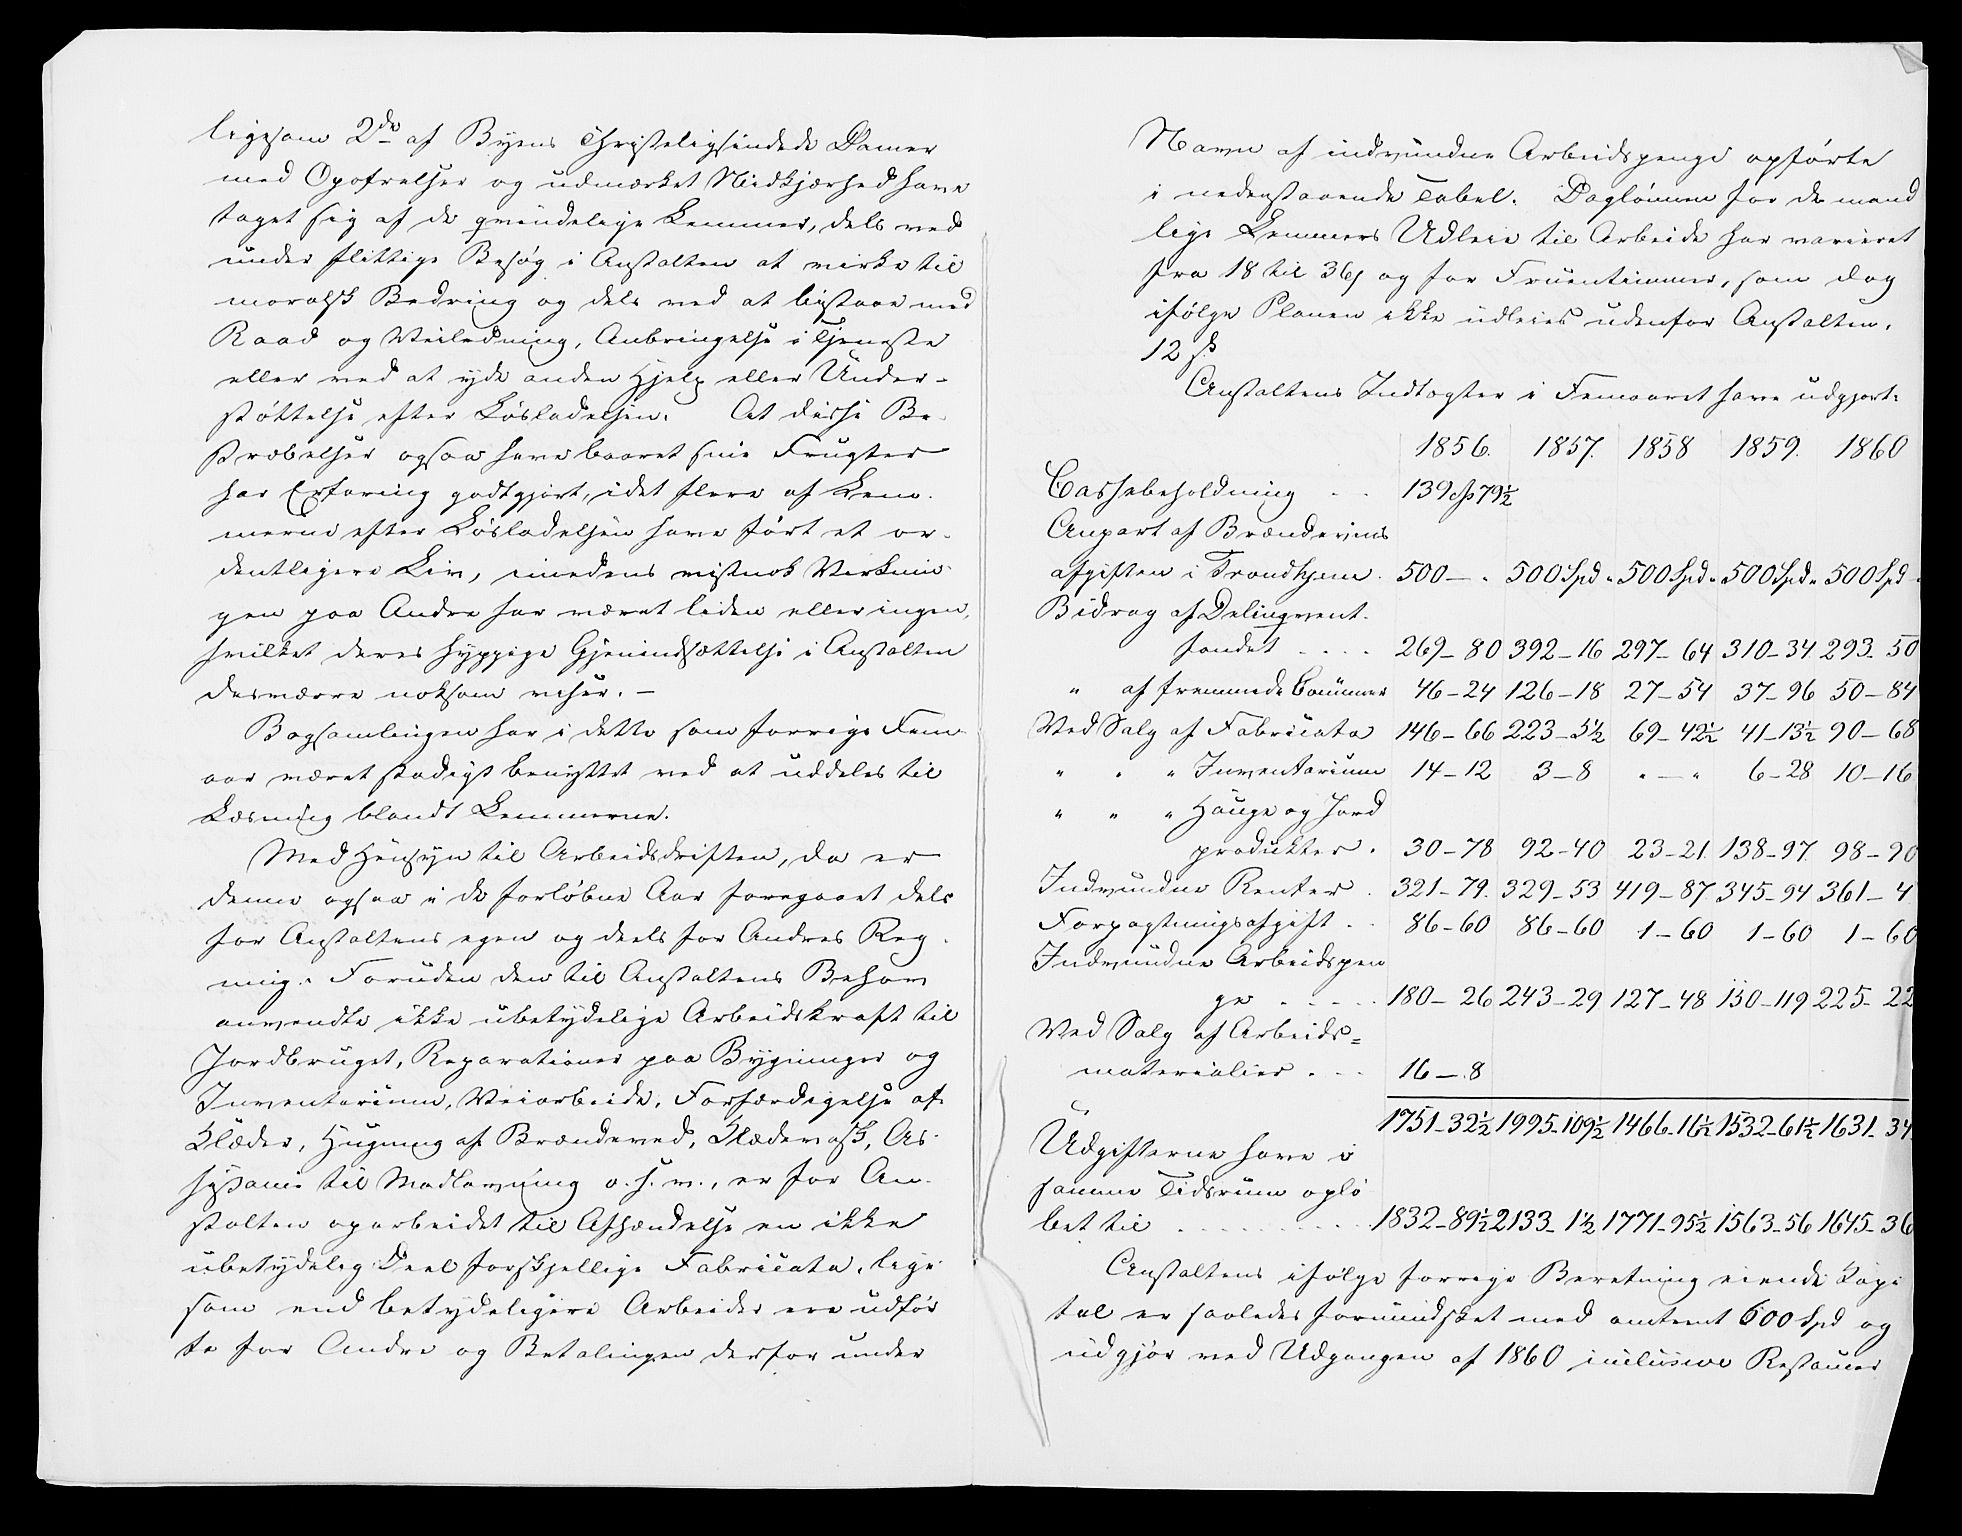 ligesom 2de af Byens Christeligsindede Damer
med Opofrelser og udmærket Nidkjærhed have
taget sig af de qvindelige Lemmer, dels ved
under flittige Besøg i Anstalten at virke til
moralsk Bedring og dels ved at bistaae med
Raad og Veiledning, Anbringelse i Tjeneste
eller ved at yde anden Hjelp eller Under-
støttelse efter Løsladelsen. At disse Be-
stræbelser ogsaa have baaret sine Frugter
har Erfaring godtgjort, idet flere af Lem-
merne efter Løsladelsen have ført et or-
dentligere Liv, imedens vistnok Virknin-
gen paa Andre har været liden eller ingen,
hvilket deres hyppige Gjenindsættelse i Anstalten
desværre noksom viser. -
Bogsamlingen har i dette som forrige Fem-
aar været stadigt benyttet ved at uddeles til
Læsning blandt Lemmerne.
Med Hensyn til Arbeidsdriften, da er
denne ogsaa i de forløbne Aar foregaaet dels
for Anstaltens egen og deels for Andres Reg-
ning. Foruden den til Anstaltens Behov
anvendte ikke ubetydelige Arbeidskraft til
Jordbruget, Reparationer paa Bygninger og
Inventarium, Veiarbeide, Forfærdigelse af
Klæder, Hugning af Brændeved, Klædevask, As-
sistance til Madlavning o. s. v., er for An-
stalten oparbeidet til Afhændelse en ikke
ubetydelig Deel forskjellige Fabricata, lige-
som end betydeligere Arbeider ere udfør-
te for Andre og Betalingen derfor under
Navn af indvundne Arbeidspenge opførte
i nedenstaaende Tabel. Daglønnen for de mand
lige Lemmers Udleie til Arbeide har varieret
fra 18 til 36 og for Fruentimmer, som dog
ifølge Planen ikke udleies udenfor Anstalten,
12 ß
Anstaltens Indtægter i Femaaret have udgjort:
1856. 1857. 1858 1859. 1860
Cassebeholdning . . 139 Sp 79½
Anpart af Brændeviins
afgiften i Trondhjem . 500 — " 500 Spd " 500 Spd " 500 Spd " 500 Spd "
Bidrag af Delinqvent-
fondet . . . . 269 - 80 392 - 16 297 - 64 310 - 34 293 - 50
" af fremmede Communer 46 - 24 126 - 18 27 - 54 37 - 96 50 - 84
Ved Salg af Fabricata 146 - 66 223 - 5½ 69 - 42½ 41 - 13½ 90 - 68
" " " Inventarium 14 - 12 3 - 8 " - " 6 - 28 10 - 16
" " " Hauge og Jord
produkter . 30 - 78 92 - 40 23 - 21 138 - 97 98 - 90
Indvundne Renter . 321 - 79. 329 - 53 419 - 87 345 - 94 361 - 4
Forpagtningsafgift . . 86 - 60 86 - 60 1 - 60 1 - 60 1 - 60
Indvundne Arbeidspen
ge . . . . 180 - 26 243 - 29 127 - 48 150 - 119 225 - 22
Ved Salg af Arbeids=
materialier . . . 16 - 8
1751 - 32½ 1995 - 109½ 1466 - 16½ 1532 - 61½ 1631 - 34
Udgifterne have i
samme Tidsrum oplø
bet til . . . . . . . . . 1832 - 89½ 2133 - 1½ 1771 - 95½ 1563 - 56 1645 - 36
Anstaltens ifølge forrige Beretning eiende Kapi
tal er saaledes formindsket med omtrent 600 Spd og
udgjør ved Udgangen af 1860 inclusive Restancer